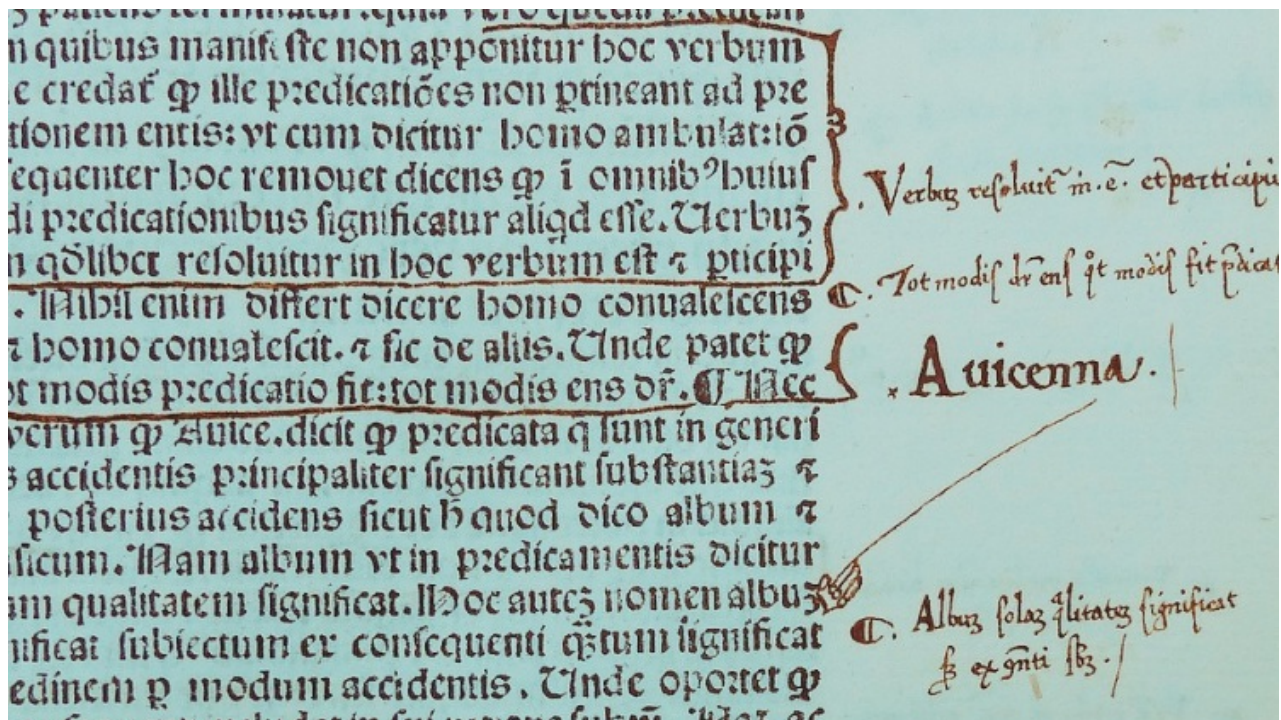 n quibus manifeste non apponitur hoc verbum
e credat̃ ꝙ ille predicatiões non ꝑtineant ad pre
tionem entis: vt cum dicitur homo ambulat: iõ
equenter hoc remouet dicens ꝙ ĩ omnibꝰ huiuſ
di predicationibus ſignificatur aliqd eſſe. Uerbuꝫ
n qđlibet reſoluitur in hoc verbum eſt ⁊ ꝑticipi
. Nihil enim differt dicere homo conualeſcens
⁊ homo conualeſcit. ⁊ ſic de aliis. Unde patet ꝙ
ot modis predicatio fit: tot modis ens dr̃. ¶ Nec
verum ꝙ Auice. dicit ꝙ predicata q ſunt in generi
s accidentis principaliter ſignificant ſubſtantiaꝫ ⁊
poſterius accidens ſicut h̄ quod dico album ⁊
ſicum. Nam album vt in predicamentis dicitur
am qualitatem ſignificat. Hoc auteꝫ nomen albuꝫ
nificat ſubiectum ex conſequenti q̃ꝫtum ſignificat
edinem ꝑ modum accidentis. Unde oportet ꝙ
. Verbuꝫ reſoluit̃ in .e. et participiũ
¶. Tot modiſ dr̃ enſ q͛t modiſ fit p̃dicat
Avicenna.
¶. Albuꝫ ſolaꝫ q͛litateꝫ ſignificat
ſꝫ ex ꝯñti ſbꝫ.